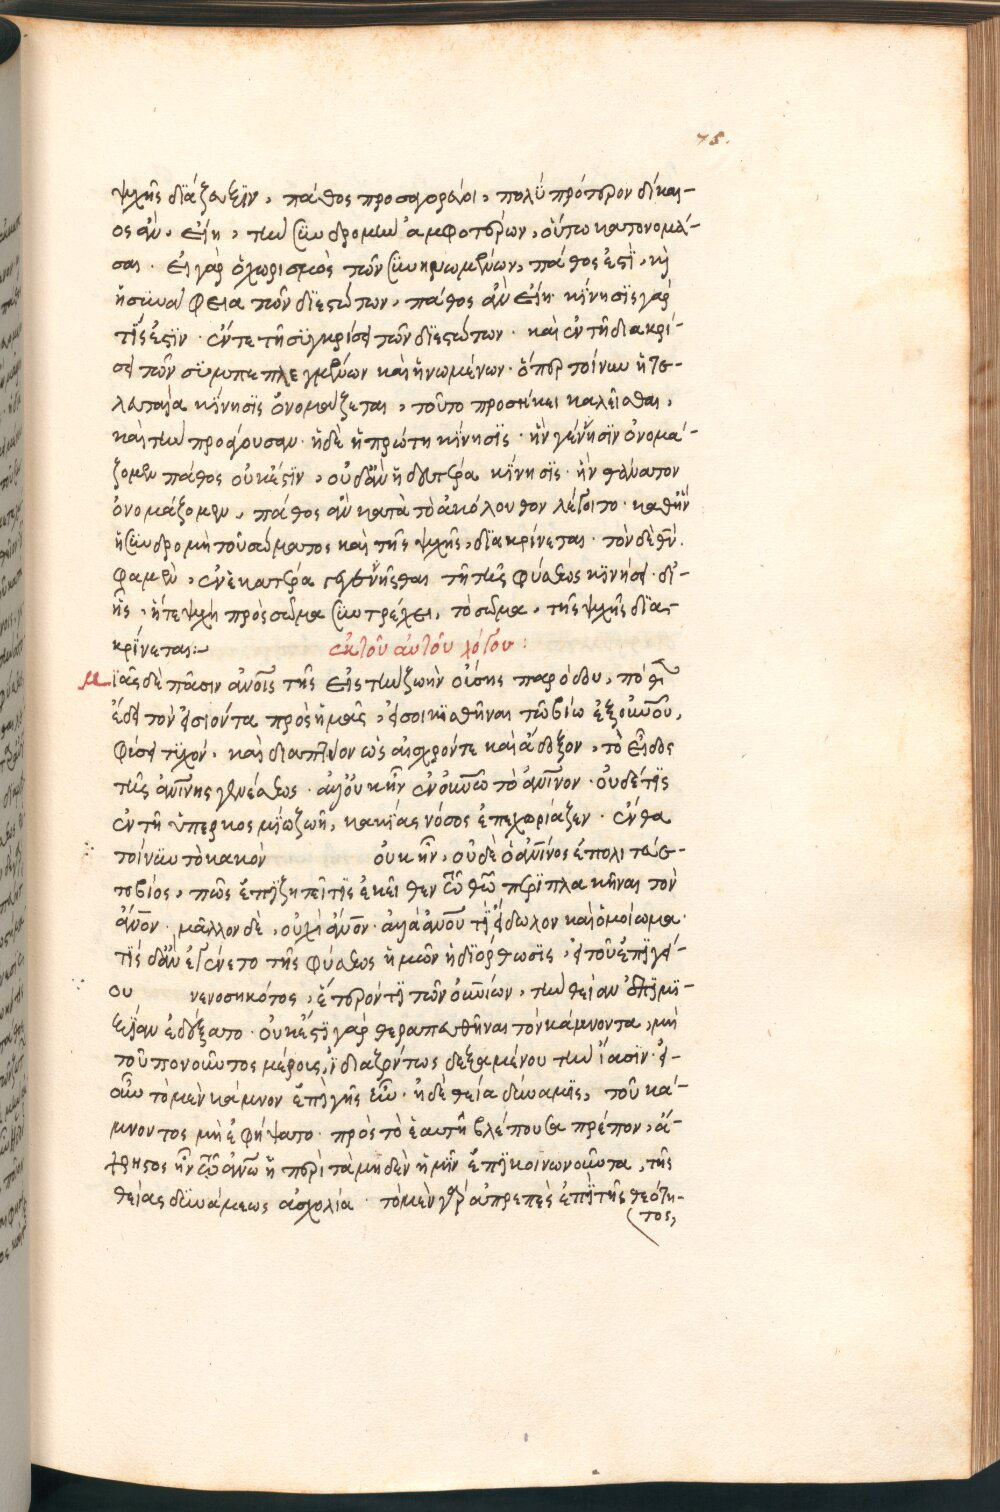 75.
ψυχῆς διάζευξιν, πάθος προσαγορεύοι, πολὺ πρότερον δίκαι-
ος ἂν, εἴη, τὴν συνδρομὴν ἀμφοτέρων, οὕτω κατονομά-
σαι. εἰ γὰρ ὁ χωρισμὸς τῶν συνηνωμένων, πάθος ἐστὶ, καὶ
ἡ συνάφεια τῶν διεστώτων, πάθος ἂν εἴη. κίνησις γάρ
τίς ἐστιν. ἔν τε τῇ συγκρίσει τῶν διεστώτων. καὶ ἐν τῇ διακρί-
σει τῶν συμπεπλεγμένων καὶ ἡνωμένων. ὅπερ τοίνυν ἡ τε-
λευταία κίνησις ὀνομάζεται, τοῦτο προσήκει καλεῖσθαι,
καὶ τὴν προάγουσαν. ἡ δὲ ἡ πρώτη κίνησις. ἣν γέννησιν ὀνομά-
ζομεν πάθος οὐκ ἔστιν, οὐδ' ἂν ἡ δευτέρα κίνησις. ἣν θάνατον
ὀνομάζομεν, πάθος ἂν κατὰ τὸ ἀκόλουθον λέγοιτο. καθ' ἣν
ἡ συνδρομὴ τοῦ σώματος καὶ τῆς ψυχῆς, διακρίνεται. τὸν δὲ θν.
φαμὲν, ἐν ἑκατέρα γεγεννῆσθαι τῇ τῆς φύσεως κινήσει. δι'
ἧς, ἥ τε ψυχὴ πρὸς σῶμα συντρέχει, τὸ σῶμα, τῆς ψυχῆς δια-
κρίνεται:~ ἐκ τοῦ αὐτοῦ λόγου:
Μιᾶς δὲ πᾶσιν ἀνοις τῆς εἰς τὴν ζωὴν οὔσης παρόδου, πόθεν
ἔδει τὸν εἰσιόντα πρὸς ἡμᾶς, εἰσοικισθῆναι τῷ βίῳ ἐξ οὐνοῦ,
φησὶ τυχόν. καὶ διαπτύων ὡς αἰσχρόν τε καὶ ἄδοξον, τὸ εἶδος
τῆς ἀνίνης γενέσεως. ἀλλ' οὐκ ἦν ἐν οὐνῶ τὸ ἀνινον. οὐδέ τις
ἐν τῇ ὑπερκοσμίω ζωῇ, κακίας νόσος ἐπεχωρίαζεν. ἔνθα
τοίνυν τὸ κακὸν οὐκ ἦν, οὐδὲ ὁ ἀνινος ἐπολιτεύε-
το βίος, πῶς ἐπιζητεῖ τίς ἐκεῖθεν τῷ θῶ περιπλακῆναι τὸν
ἄνον. μᾶλλον δὲ, οὐχὶ ἄνον. ἀλλὰ ἀνου τι εἴδωλον καὶ ὁμοίωμα.
τίς δ' ἂν ἐγένετο τῆς φύσεως ἡμῶν ἡ διόρθωσις, εἰ τοῦ ἐπιγεί-
ου νενοσηκότος, ἕτερόν τι τῶν οὐνίων, τὴν θείαν ἐπιμι-
ξίαν ἐδέξατο. οὐκ ἔστι γὰρ θεραπευθῆναι τὸν κάμνοντα, μὴ
τοῦ πονοῦντος μέρους, ἰδιαζόντως δεξαμένου τὴν ἴασιν. εἰ
οὖν τὸ μὲν κάμνον ἐπὶ γῆς ἦν. ἡ δὲ θεία δύναμις, τοῦ κά-
μνοντος μὴ ἐφήψατο. πρὸς τὸ ἑαυτῇ βλέπουσα πρέπον, ἄ-
χρηστος ἦν τῷ ἀνω ἡ περὶ τὰ μηδὲν ἡμῖν ἐπικοινωνοῦντα, τῆς
θείας δυνάμεως ἀσχολία. τὸ μὲν γὰρ ἀπρεπὲς ἐπὶ τῆς θεότη-
τος,